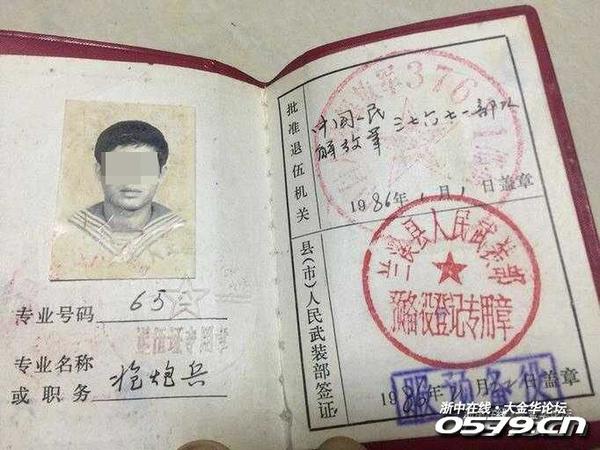 专业号码 65
专业名称
或职务 枪炮兵
批准退伍机关
中国人民
解放军三七六七一部队
1986年1月1日盖章
376
县(市)人民武装部签证
县人民武装部
预备役登记专用章
服预备役
1986年1月22日盖章
浙中在线·大金华论坛
0579.cn